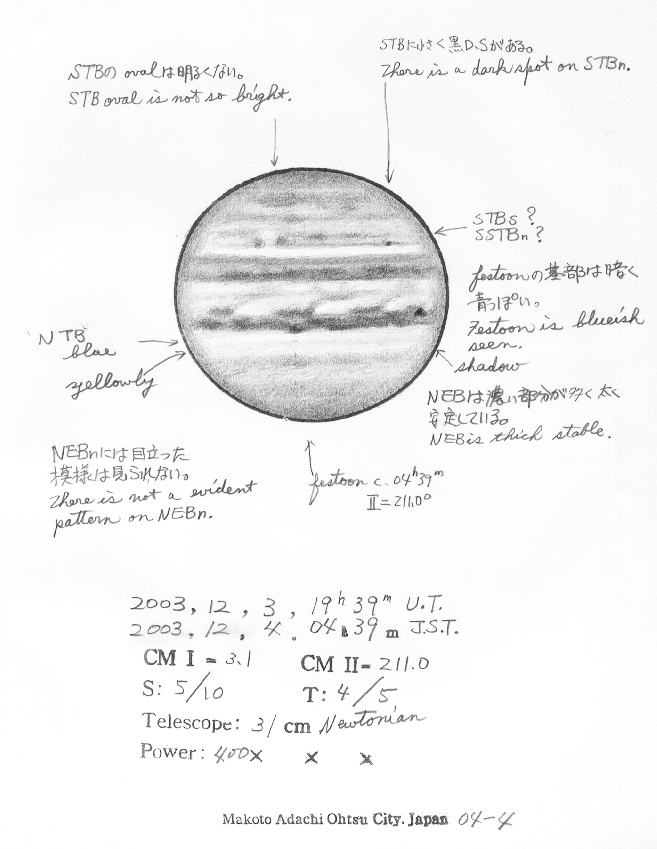 STBの ovalは明るくない。
STB oval is not so bright.
STBに小さく黒D.Sがある。
There is a dark spot on STBn.
STBs ?
SSTBn ?
festoonの基部は暗く
青っぽい。
Festoon is blueish
seen.
shadow
NTB
blue
yellowly
NEBは濃い部分が多く太く
安定している。
NEB is thick stable.
NEBnには目立った
模様は見られない。
There is not a evident
pattern on NEBn.
festoon c. 04h39m
II=211.0°
2003, 12, 3, 19h 39m U.T.
2003. 12, 4. 04h39m J.S.T.
CM I = 3.1 CM II= 211.0
S: 5/10 T: 4/5
Telescope: 31 cm Newtonian
Power: 400x x x
Makoto Adachi Ohtsu City. Japan 04-4